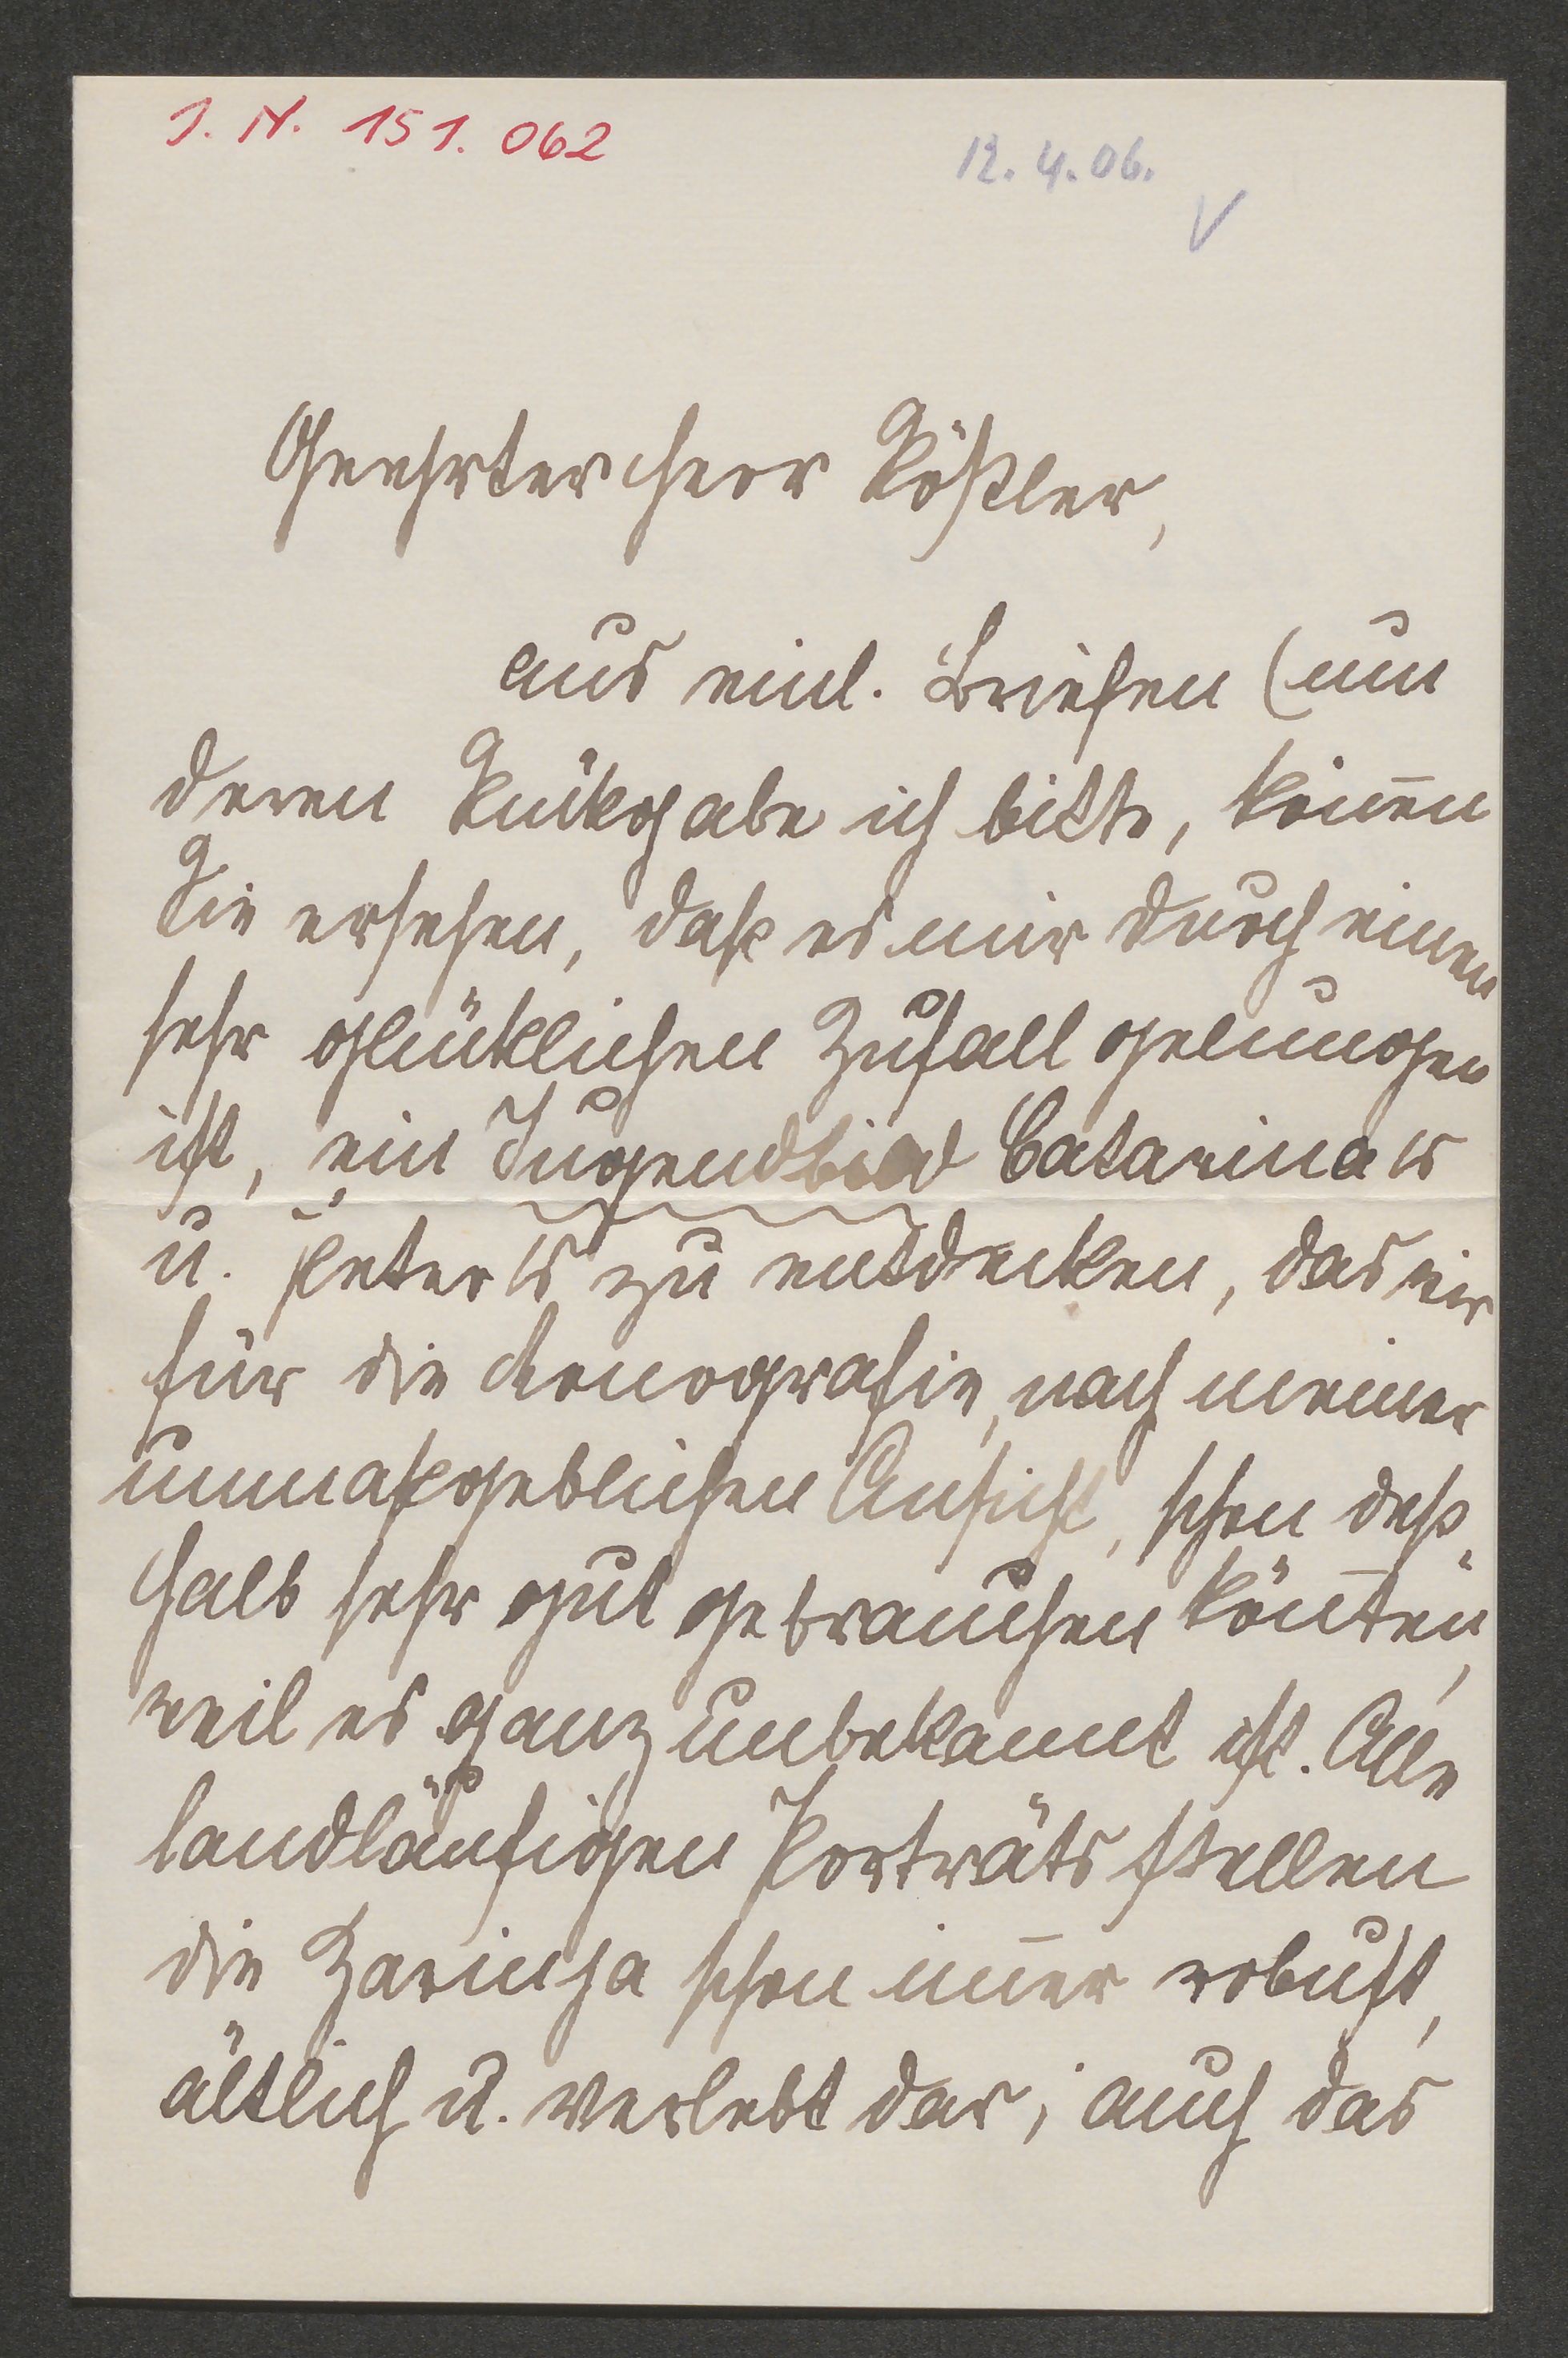 J. N. 151.062
12.4.06.
Geehrter Herr Rößler,
aus einl. Briefen (um
deren Rükgabe ich bitte, könn̄en
Sie ersehen, daß es mir durch einen
sehr glüklichen Zufall gelungen
ist, ein Jugendbild Catarina's
u. Peter's zu entdecken, das wir
für die Monografie, nach meiner
unmaßgeblichen Ansicht, schon deß-
halb sehr gut gebrauchen kön̄ten,
weil es ganz unbekannt ist. Alle
landläufigen Porträts stellen
die Zariza schon im̄er robust,
ältlich u. verlebt dar; auch das